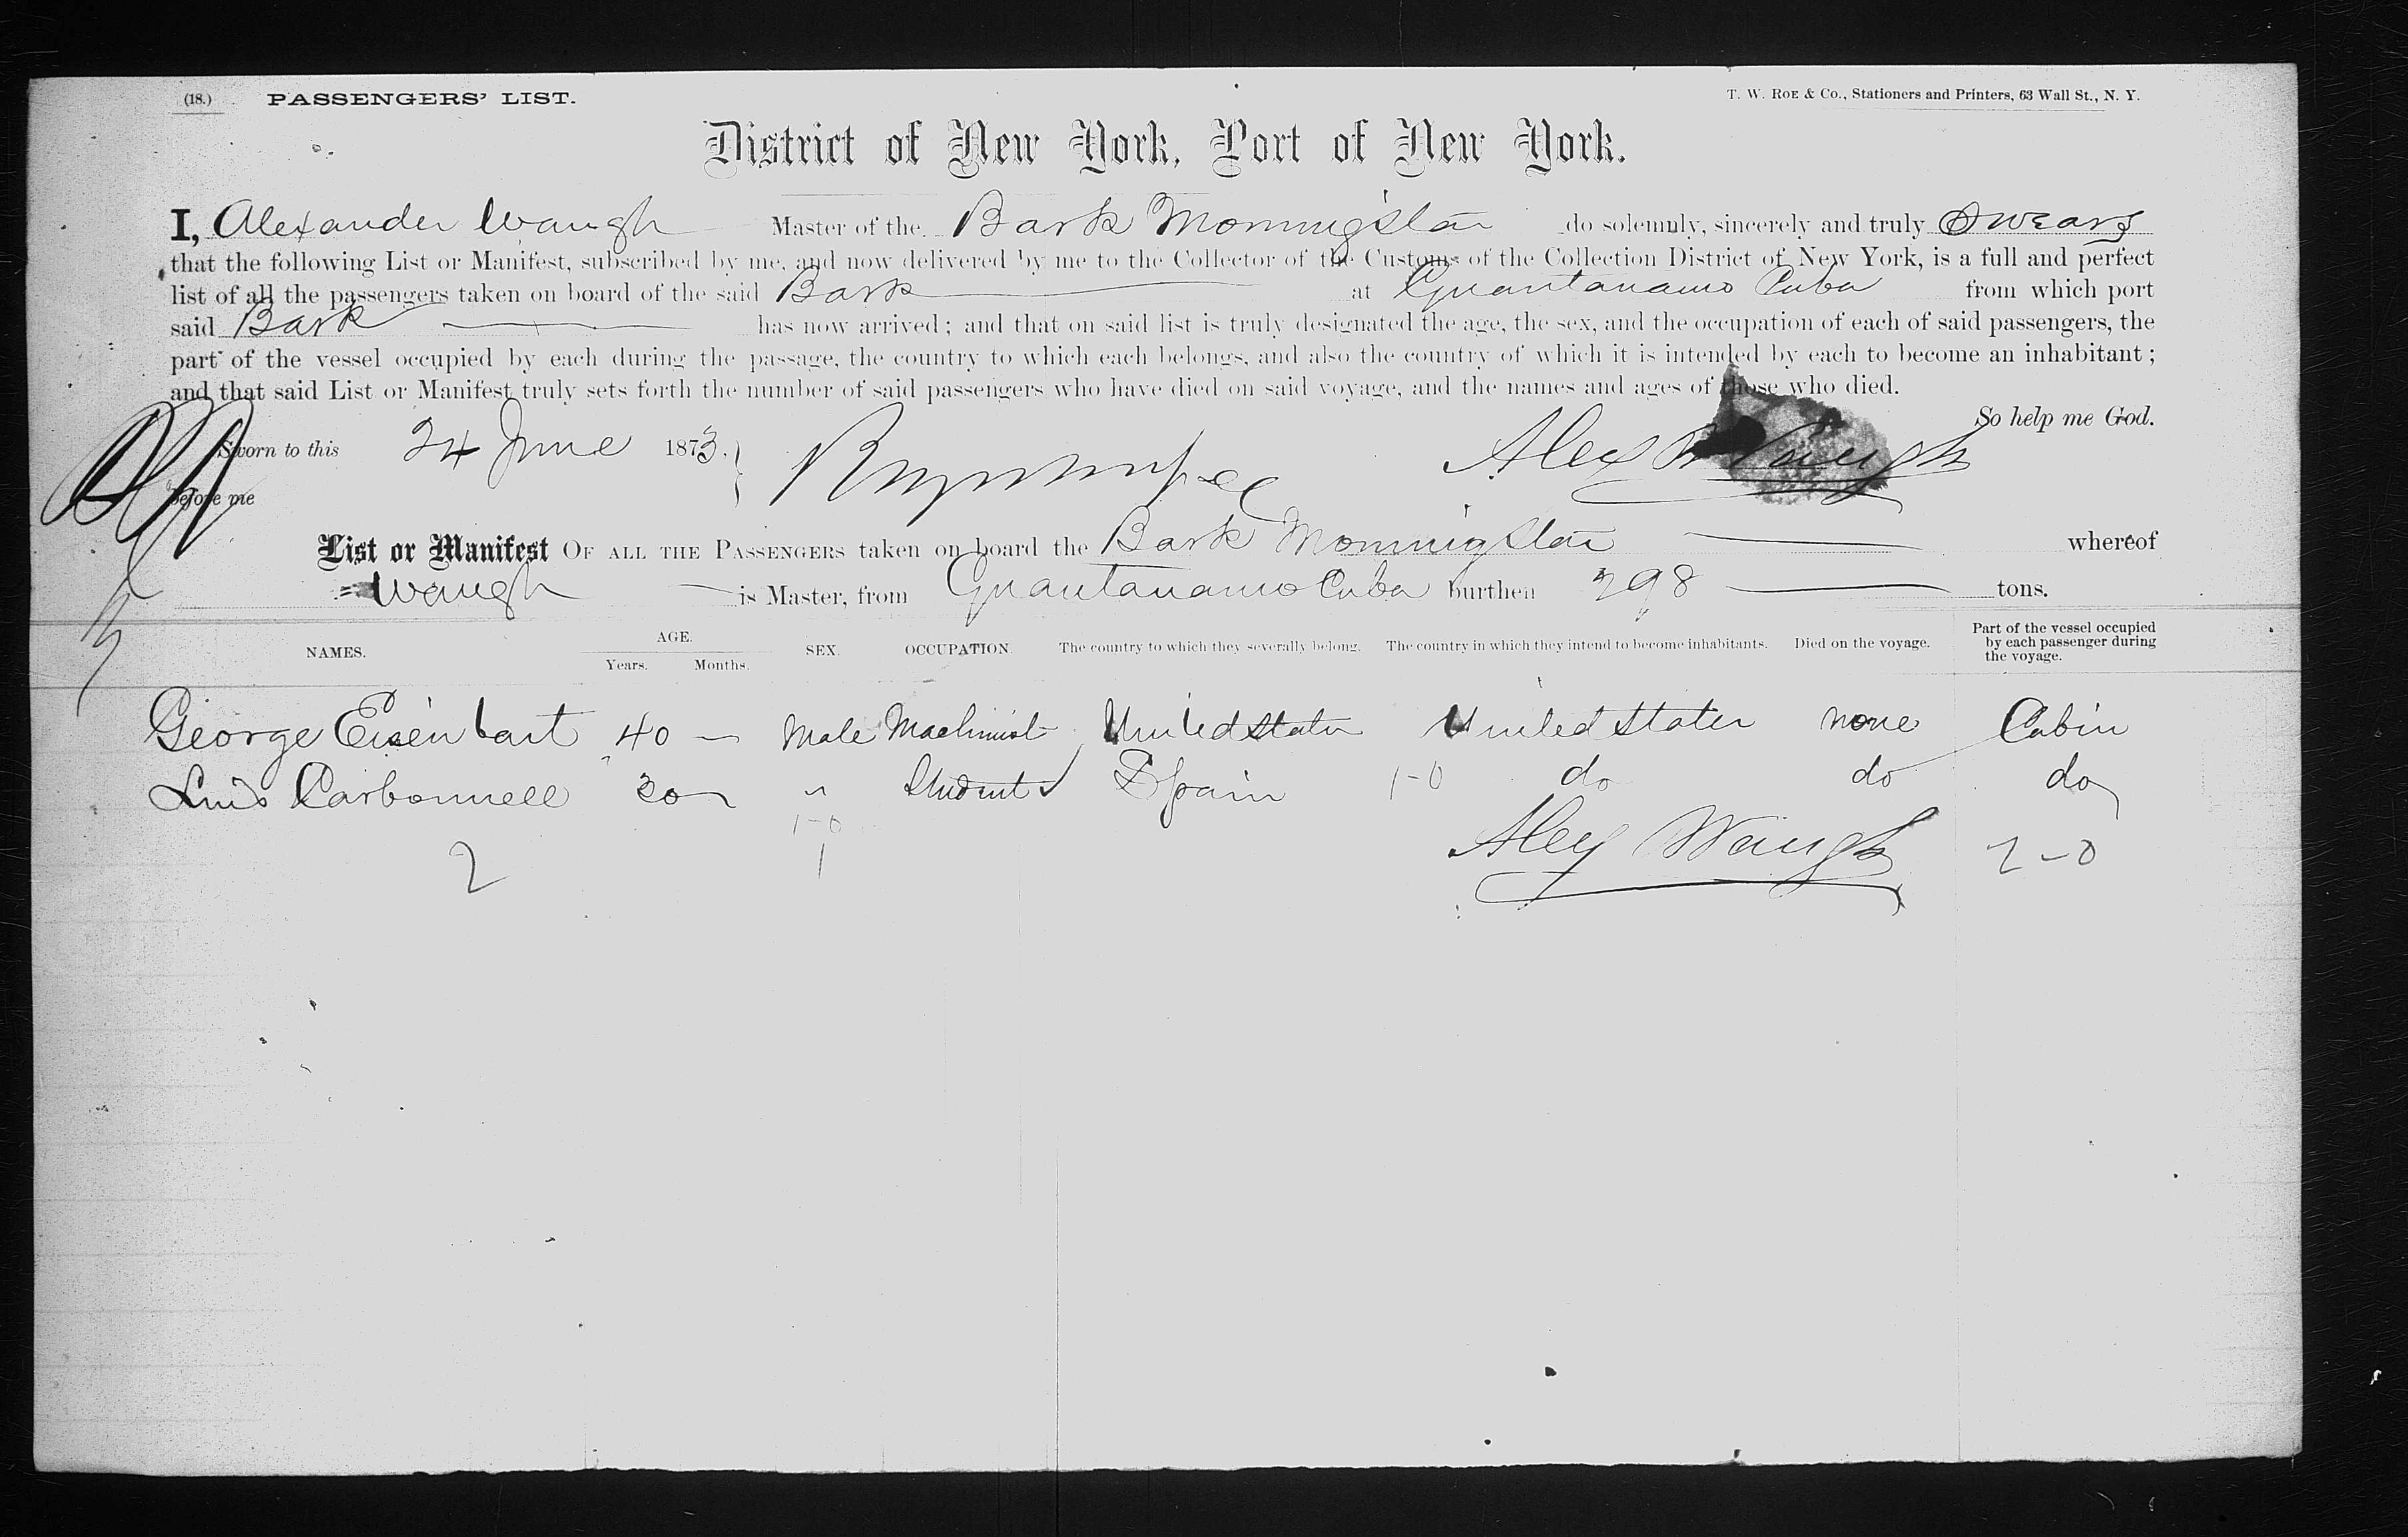 (18.) PASSENGERS' LIST. T. W. ROE & Co., Stationers and Printers, 63 Wall St., N. Y.
District of New York, Port of New York.
I, Alexander Waugh Master of the Bark Morning Star do solemnly, sincerely and truly Swear
that the following List or Manifest, subscribed by me, and now delivered by me to the Collector of the Customs of the Collection District of New York, is a full and perfect
list of all the passengers taken on board of the said Bark at Guantanamo Cuba from which port
said Bark has now arrived; and that on said list is truly designated the age, the sex, and the occupation of each of said passengers, the
part of the vessel occupied by each during the passage, the country to which each belongs, and also the country of which it is intended by each to become an inhabitant;
and that said List or Manifest truly sets forth the number of said passengers who have died on said voyage, and the names and ages of those who died.
So help me God.
Sworn to this 24 June 1873. Alex Waugh
before me
List or Manifest OF ALL THE PASSENGERS taken on board the Bark Morning Star whereof
Waugh is Master, from Guantanamo Cuba burthen 298 tons.
NAMES. AGE. Years. Months. SEX. OCCUPATION. The country to which they severally belong. The country in which they intend to become inhabitants. Died on the voyage. Part of the vessel occupied by each passenger during the voyage.
George Eisenbart 40 — Male Machinist United States United States none Cabin
Luis Carbonnell 20 " Student Spain 1-0 do do do
1-0
2 1 Alex Waugh 2-0